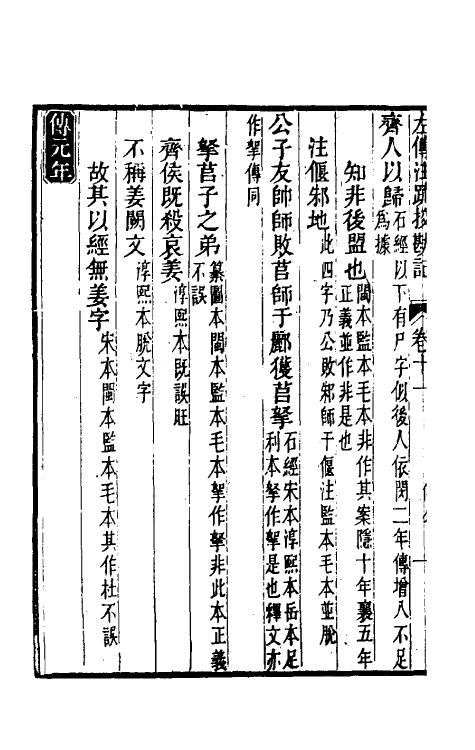 左傳注疏挍勘記 卷十一
齊人以歸石經以下有尸字似後人依閔二年傳增入不足爲據
知非後盟也閩本監本毛本非作其案隱十年襄五年正義並作非是也
注偃邾地此四字乃公敗邾師于偃注監本毛本並脫
公子友帥師敗莒師于酈獲莒拏石經宋本淳熙本岳本足利本拏作挐是也釋文亦
作挐傳同
拏莒子之弟纂圖本閩本監本毛本挐作拏非此本正義不誤
齊侯既殺哀姜淳熙本既誤旺
不稱姜闕文淳熙本脫文字
故其以經無姜字宋本閩本監本毛本其作杜不誤
傳元年